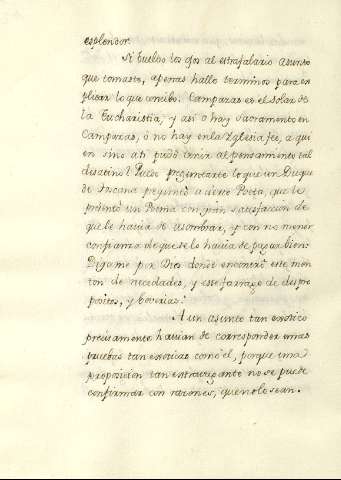 esplendor.
Si buelbo los ojos al estrafalario asunto
que tomaste, apenas hallo terminos para ex
plicar lo que concibo. Camparas es el solar de
la Eucharistia, y asi o hay Sacramento en
Camparas, ò no hay en la Yglesia fee, a qui
en sino a ti pudo venir al pensamiento tal
disatino? Puedo preguntarte lo que un Duque
de Tocana preguntò a cierto Poeta, que le
presentò un Poema con gran satisfaccion de
que le havia de asombrar, y con no menor
confianza de que se lo havia de pagar bien:
Digame por Dios donde encontrò este mon
ton de necedades, y este farrago de despro
positos, y boverias?
A un asunto tan exotico
precisamente havian de corresponder unas
pruebas tan exoticas como èl, porque una
proposicion tan extravagante no se puede
confirmar con razones, que no lo sean.